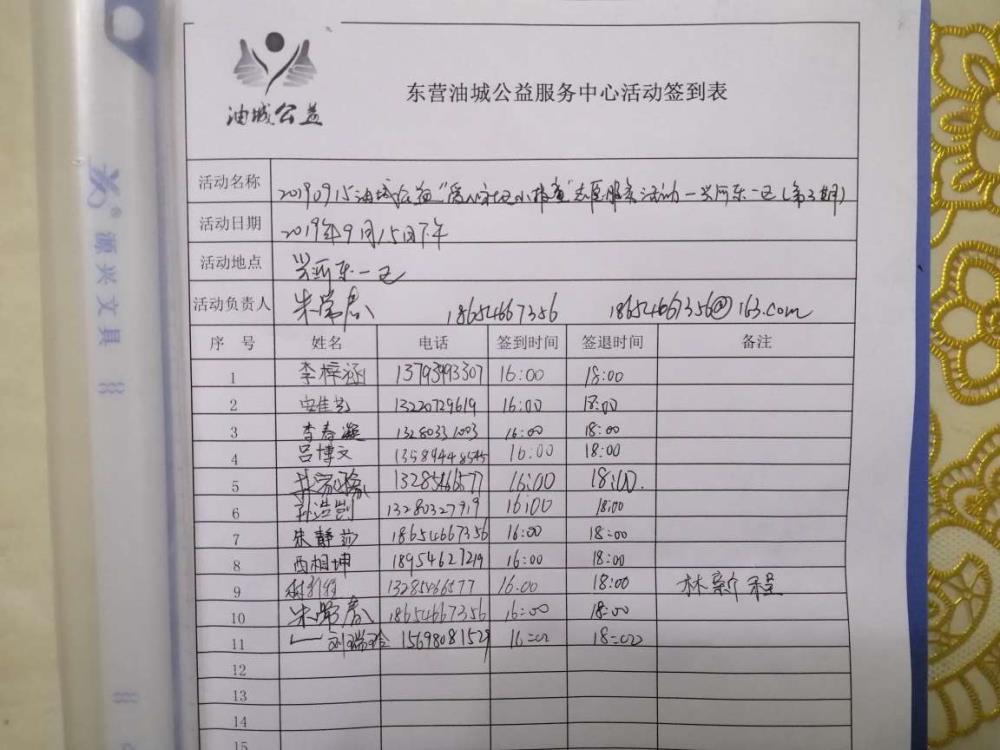 油城公益
东营油城公益服务中心活动签到表
活动名称 20190915油城公益"爱心社区小精灵"志愿服务活动—兴河东一区(第3期)
活动日期 2019年9月15日下午
活动地点 兴河东一区
活动负责人 朱常春 18654667356 18654667356@163.com
序 号 姓名 电话 签到时间 签退时间 备注
1 李梓涵 13793993307 16:00 18:00
2 安佳艺 13220729619 16:00 18:00
3 李春凝 13280331003 16:00 18:00
4 吕博文 13589448545 16:00 18:00
5 13285466577 16:00 18:00.
6 孙浩凯 13280327919 16:00 18:00
7 朱静茹 18654667356 16:00 18:00
8 西相坤 18954627219 16:00 18:00
9 13285466577 16:00 18:00 林新程
10 朱常春 18654667356 16:00 18:00
11 刘瑞玲 15698081529 16:00 18:00
12
13
14
15
源兴文具